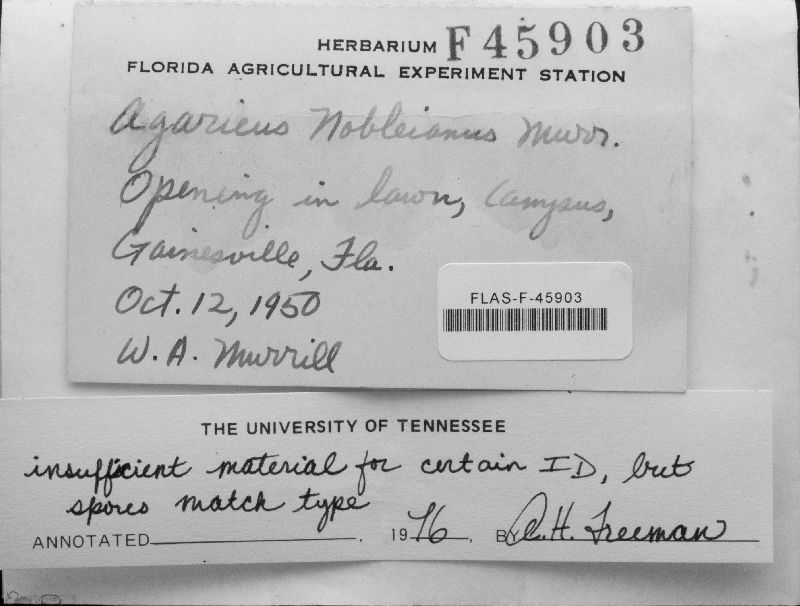 HERBARIUM F45903
FLORIDA AGRICULTURAL EXPERIMENT STATION
Agaricus Nobleianus Murr.
Opening in lawn, Campus,
Gainesville, Fla.
Oct. 12, 1950
W. A. Murrill
FLAS-F-45903
THE UNIVERSITY OF TENNESSEE
insufficient material for certain ID, but
spores match type
ANNOTATED , 1976, BY A. H. Freeman